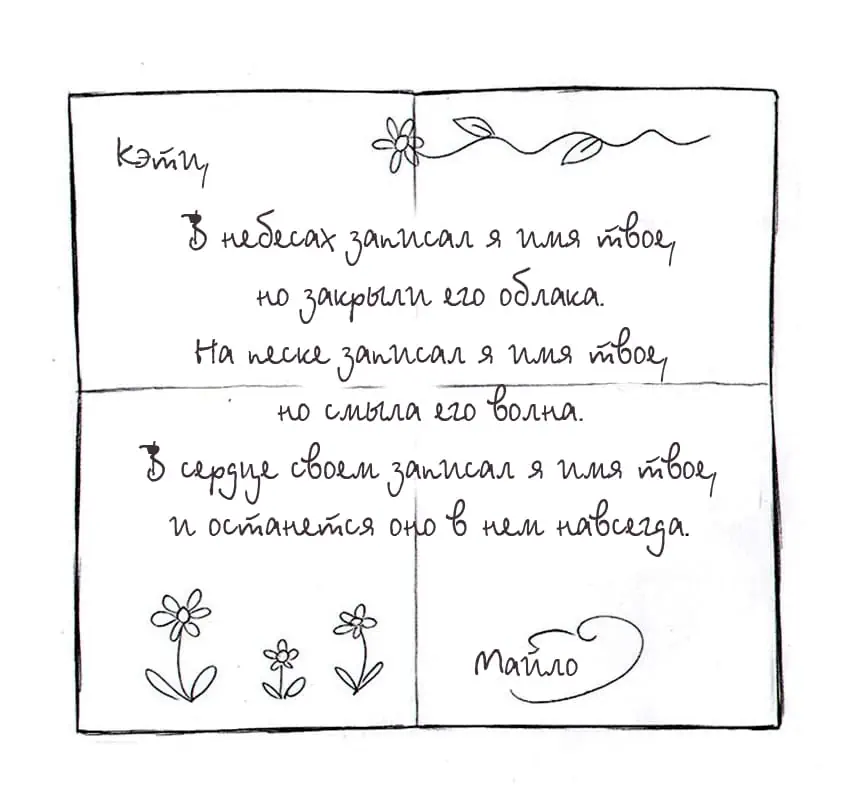 Кэти,
В небесах записал я имя твое,
но закрыли его облака.
На песке записал я имя твое,
но смыла его волна.
В сердце своем записал я имя твое,
и останется оно в нем навсегда.
Майло